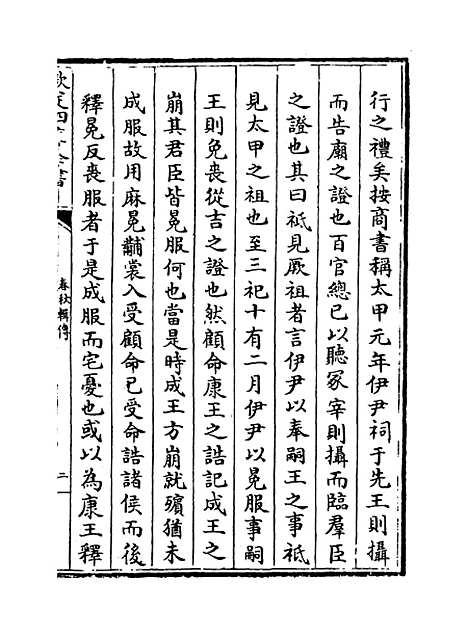 行之禮矣按商書稱太甲元年伊尹祠于先王則攝
而告廟之證也百官總已以聽冢宰則攝而臨羣臣
之證也其曰祗見厥祖者言伊尹以奉嗣王之事祗
見太甲之祖也至三祀十有二月伊尹以冕服事嗣
王則免喪從吉之證也然顧命康王之誥記成王之
崩其君臣皆冕服何也當是時成王方崩就殯猶未
成服故用麻冕黼裳入受顧命已受命誥諸侯而後
釋冕反喪服者于是成服而宅憂也或以為康王釋
欽定四庫全書
春秋輯傳
二